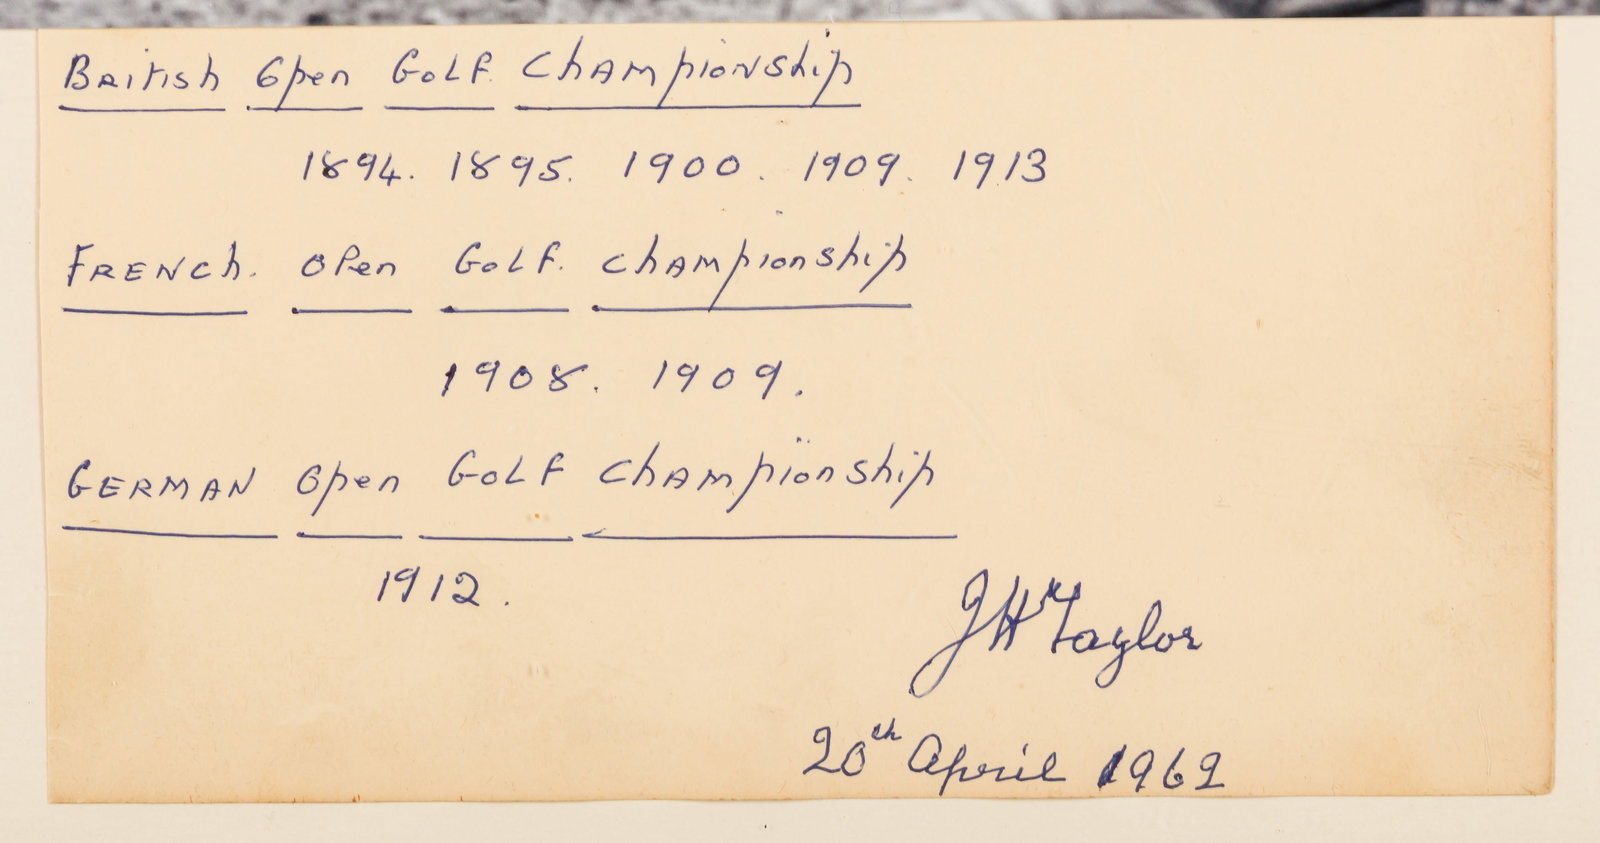 British Open Golf. Championship
1894. 1895. 1900. 1909. 1913
French. Open Golf. Championship
1908. 1909.
German Open Golf Championship
1912.
JH Taylor
20th April 1962